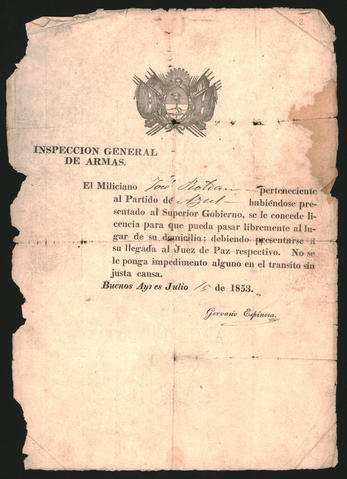 2
INSPECCION GENERAL
DE ARMAS.
El Miliciano José Roldan perteneciente
al Partido de Azul habiéndose pre-
sentado al Superior Gobierno, se le concede li-
cencia para que pueda pasar libremente al lu-
gar de su domicilio; debiendo presentarse a
su llegada al Juez de Paz respectivo. No se
le ponga impedimento alguno en el transito sin
justa causa.
Buenos Ayres Julio 15 de 1853.
Gervasio Espinosa.